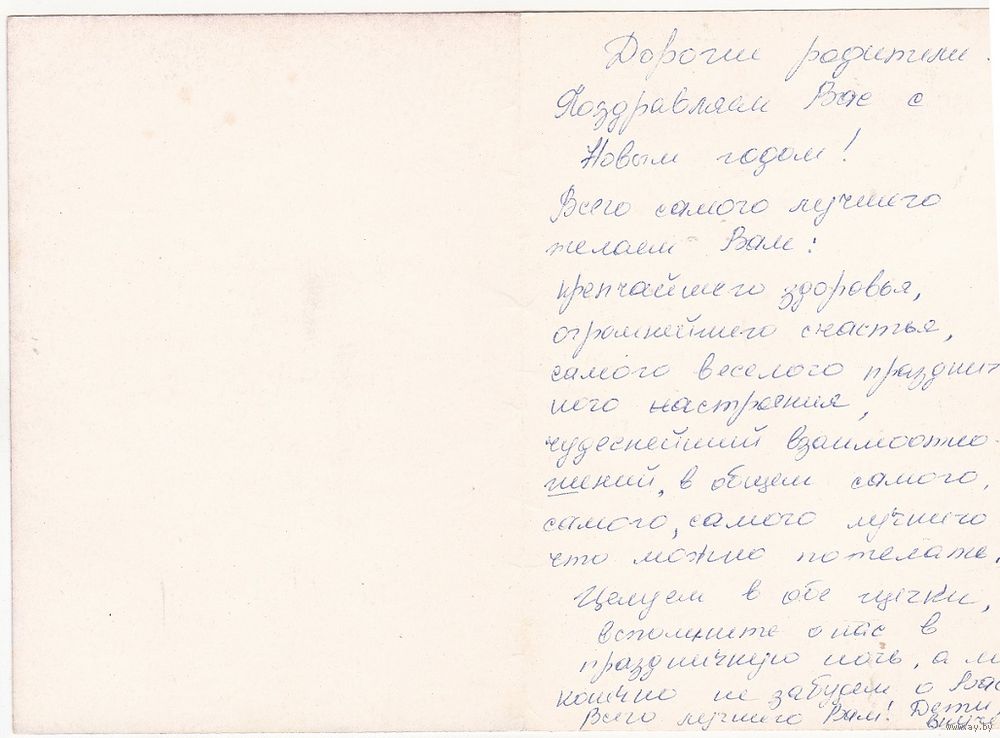 Дорогие родители.
Поздравляем Вас с
Новым годом!
Всего самого лучшего
желаем Вам:
крепчайшего здоровья,
огромнейшего счастья,
самого веселого празднич
ного настроения,
чудеснейший взаимоотно-
шений, в общем самого,
самого, самого лучшего
что можно пожелать.
Целуем в обе щечки,
вспомните о нас в
праздничную ночь, а мы
конечно не забудем о Вас
Всего лучшего Вам! Дети,
www.ay.by